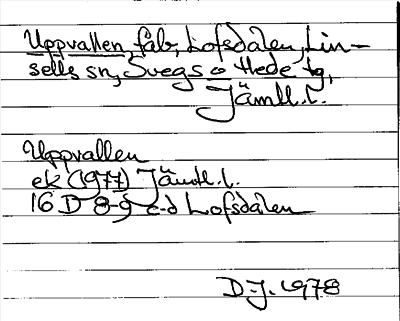 Uppvallen, fäb, Lofsdalen, Lin-
sells sn, Svegs o Hede tg,
Jämtl. l.
Uppvallen
ek (1977) Jämtl. l.
16 D 8-9 c-d Lofsdalen
D.J. 1978